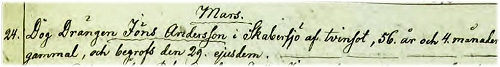 Mars.
24. Dög Drängen Jöns Andersson i Skabersjö af tvinsot, 56. år och 4. månader
gammal, och begrofs den 29. ejusdem.